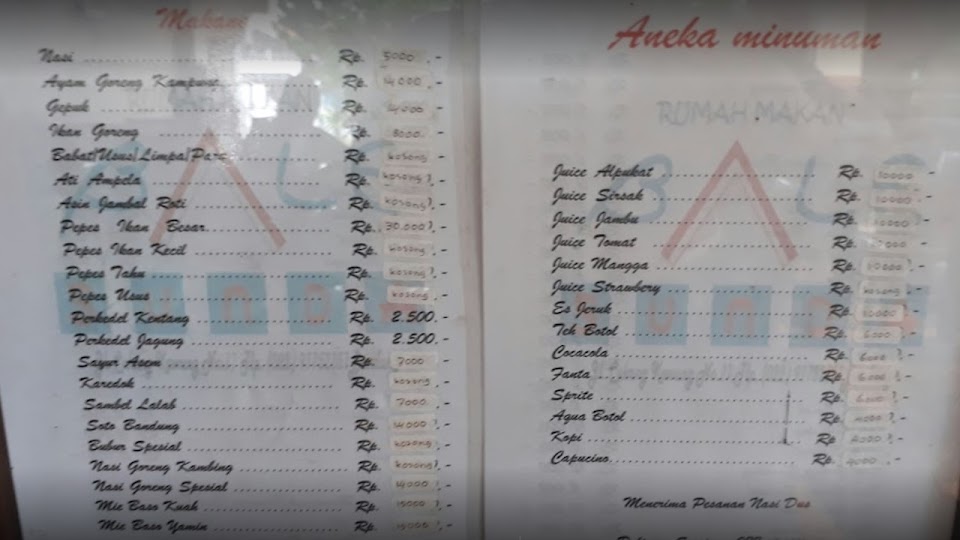 Makan
Nasi Rp. 5000,-
Ayam Goreng Kampung Rp. 14000,-
Gepuk Rp. 14000,-
Ikan Goreng Rp. 8000,-
Babat/Usus/Limpa/Paru Rp. kosong,-
Ati Ampela Rp. kosong,-
Asin Jambal Roti Rp. kosong,-
Pepes Ikan Besar Rp. 30.000,-
Pepes Ikan Kecil Rp. kosong,-
Pepes Tahu Rp. kosong,-
Pepes Usus Rp. kosong,-
Perkedel Kentang Rp. 2.500,-
Perkedel Jagung Rp. 2.500,-
Sayur Asem Rp. 7000,-
Karedok Rp. kosong,-
Sambel Lalab Rp. 7000,-
Soto Bandung Rp. 14000,-
Bubur Spesial Rp. kosong,-
Nasi Goreng Kambing Rp. kosong,-
Nasi Goreng Spesial Rp. 14000,-
Mie Baso Kuah Rp. 15000,-
Mie Baso Yamin Rp. 15000,-
Aneka minuman
RUMAH MAKAN
BALE
Juice Alpukat Rp. 10000,-
Juice Sirsak Rp. 10000,-
Juice Jambu Rp. 10000,-
Juice Tomat Rp.
Juice Mangga Rp. 10000,-
Juice Strawbery Rp. kosong,-
Es Jeruk Rp. 10000,-
Teh Botol Rp. 6000,-
Cocacola Rp. 6000,-
Fanta Rp. 6.000,-
Sprite Rp. 6000,-
Aqua Botol Rp. 4000,-
Kopi Rp. 4000,-
Capucino Rp. 4000,-
Menerima Pesanan Nasi Dus